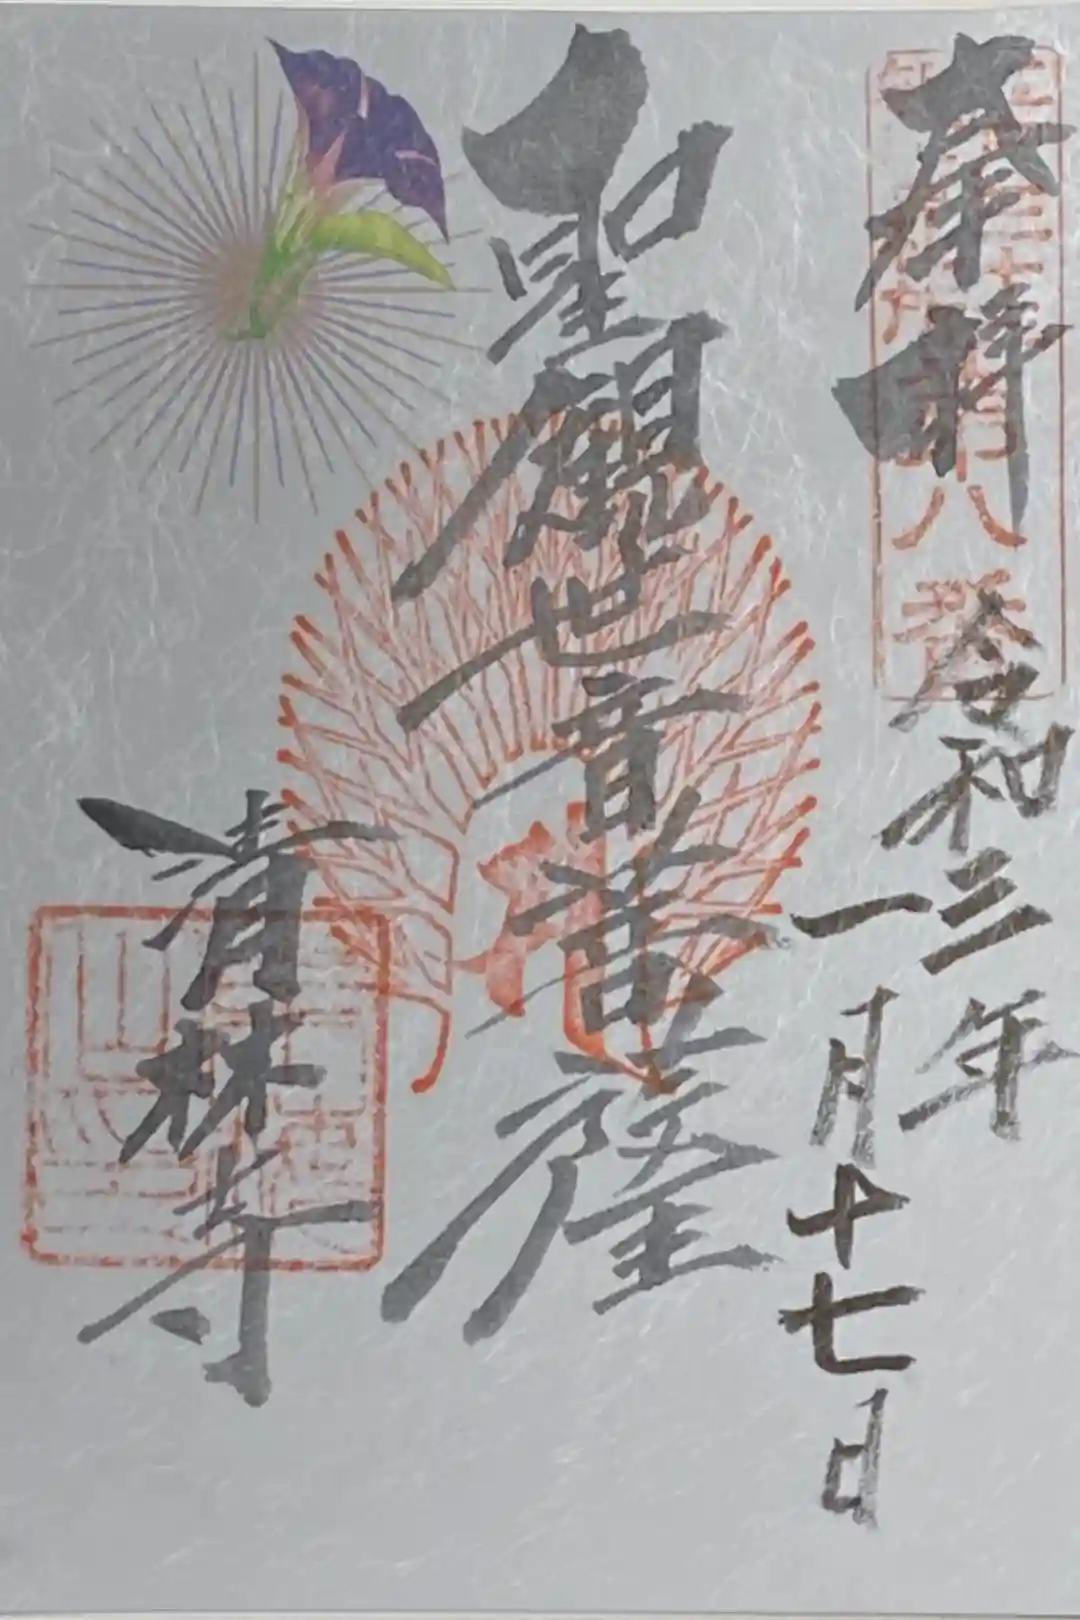 奉拝
令和三年
一月十七日
聖観世音菩薩
青林寺